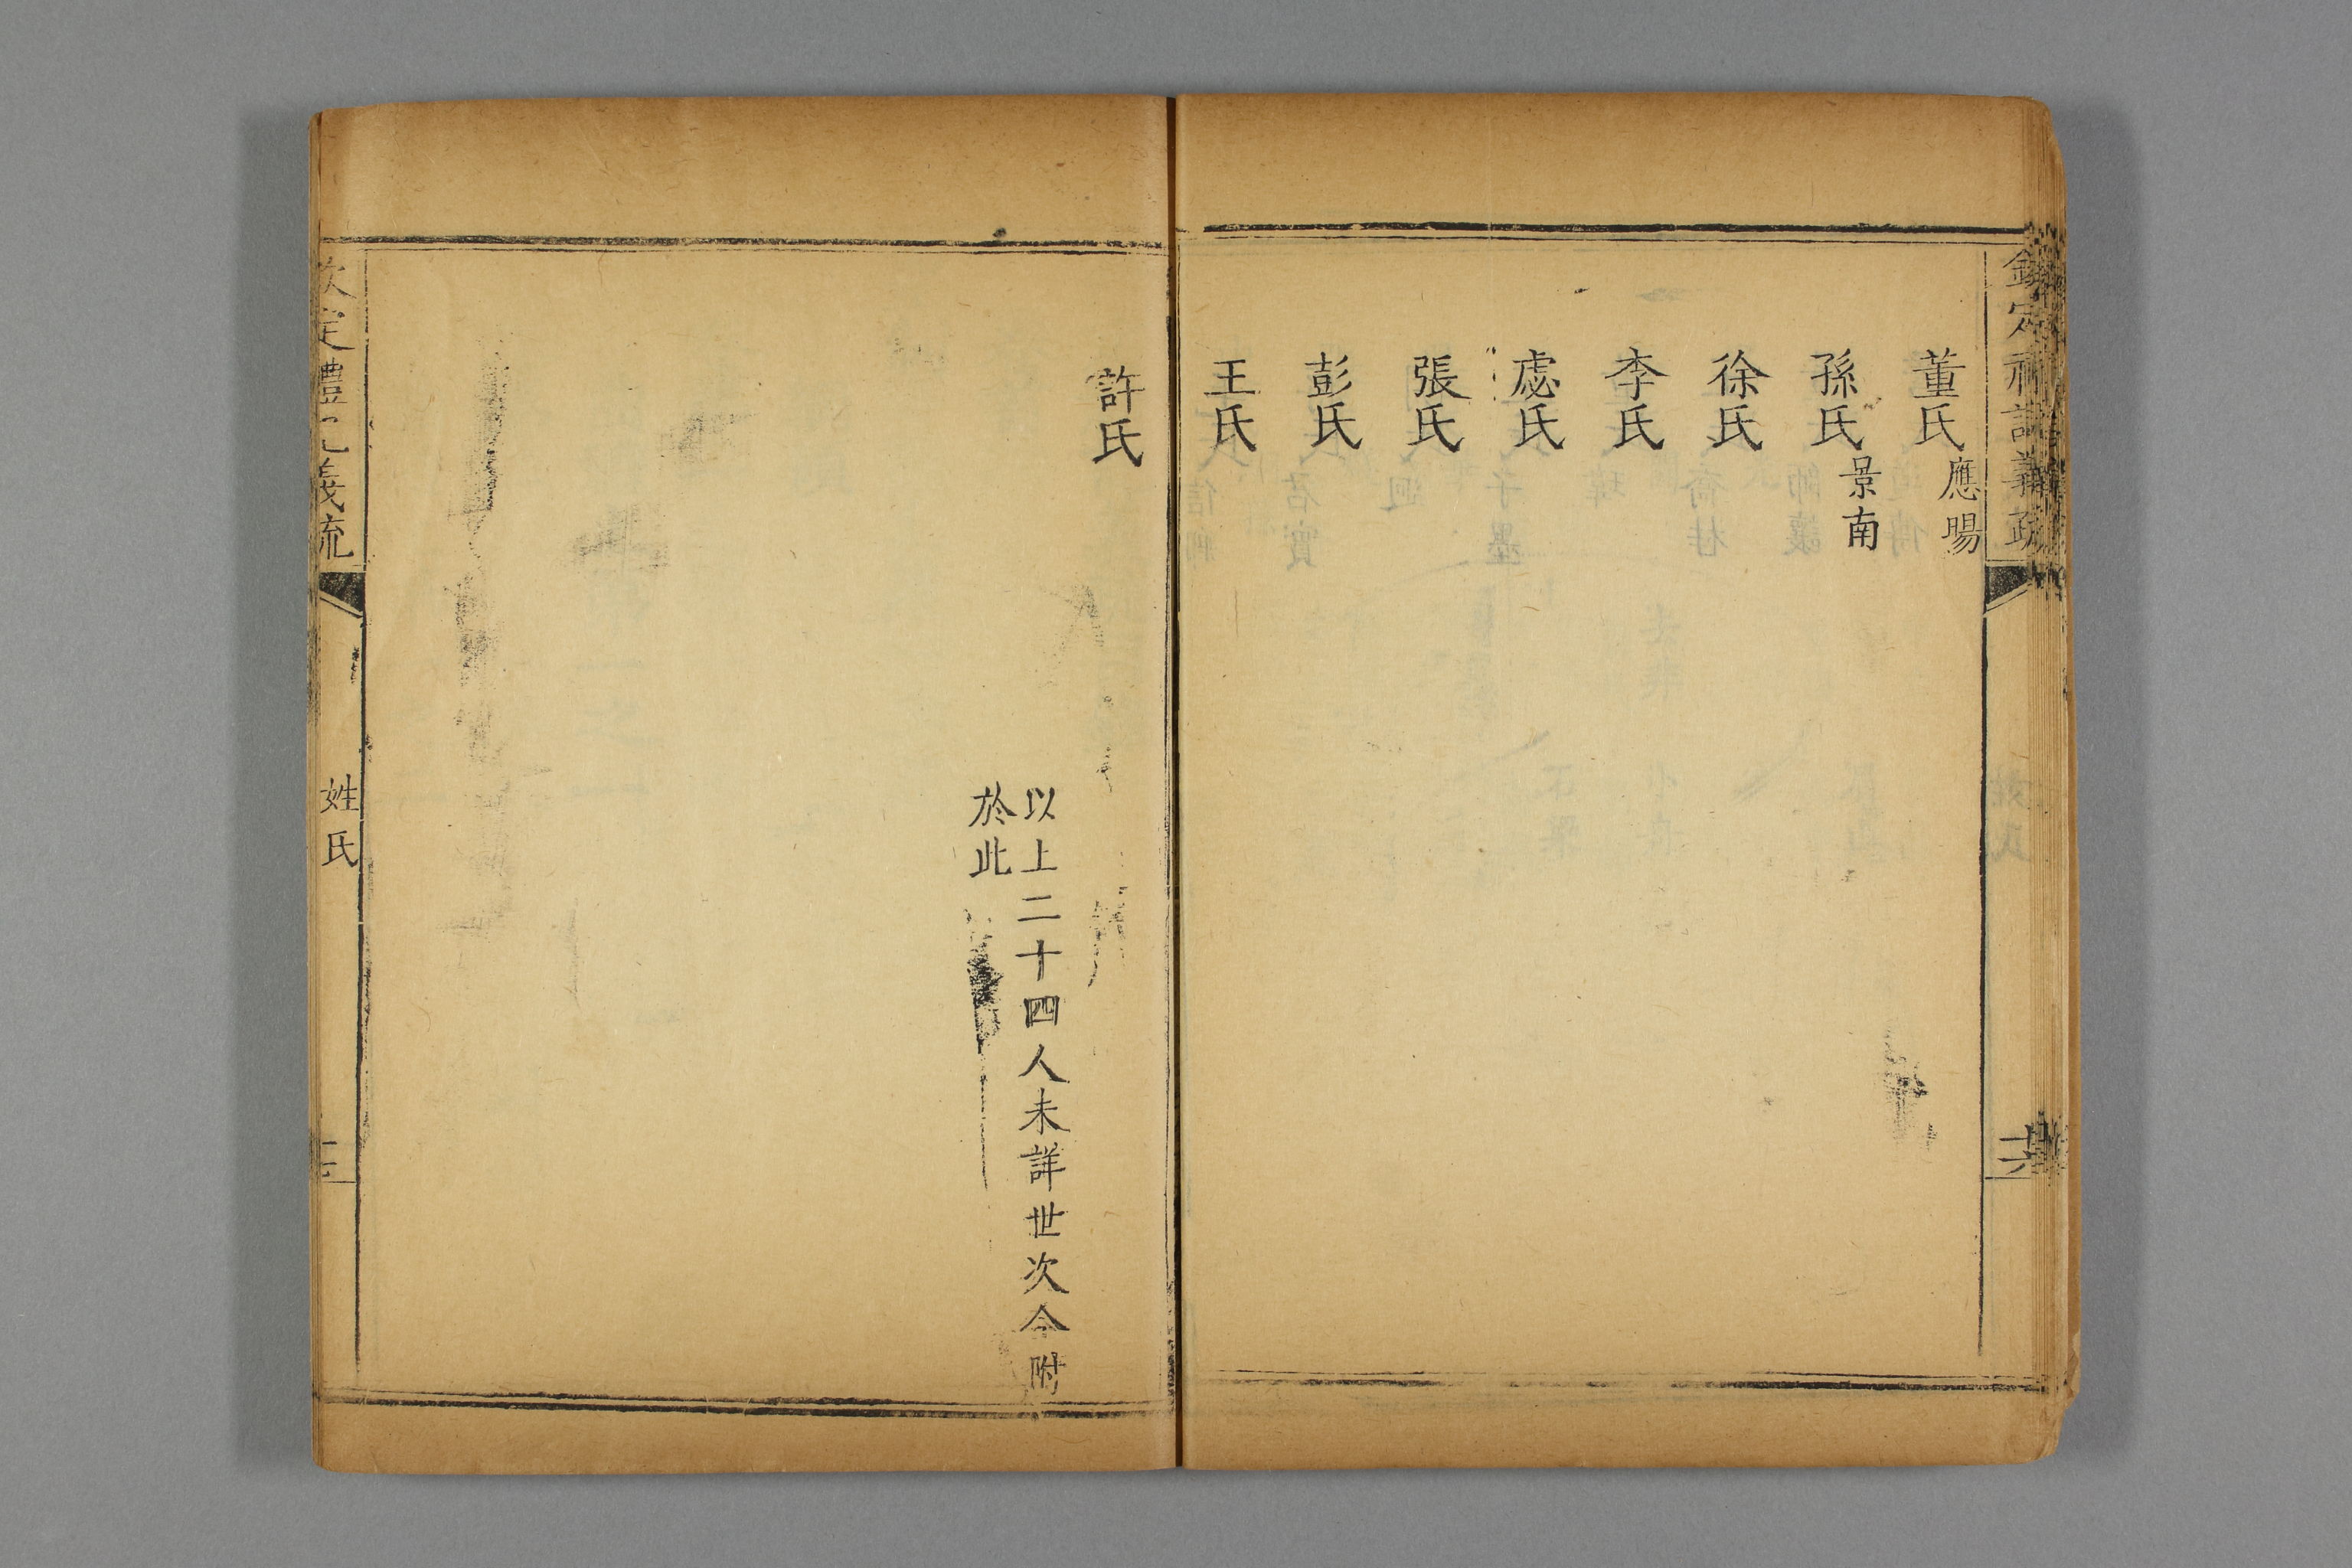 欽定禮記義疏
十六
董氏應暘
孫氏景南
徐氏
李氏
處氏
張氏
彭氏
王氏
許氏
以上二十四人未詳世次今附
於此
欽定禮記義疏
姓氏